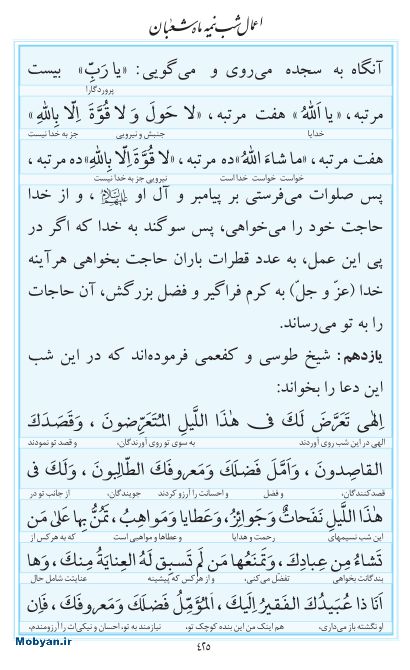 اعمال شب نیمه ماه شعبان
آنگاه به سجده می‌روی و می‌گویی: «یا رَبِّ» بیست
پروردگارا
مرتبه، «یا اَللهُ» هفت مرتبه، «لا حَولَ وَ لا قُوَّةَ اِلّا بِاللهِ»
خدایا جنبش و نیرویی جز به خدا نیست
هفت مرتبه، «ما شاءَ اللهُ» ده مرتبه، «لا قُوَّةَ اِلّا بِاللهِ» ده مرتبه،
خواست خواست خدا است نیرویی جز به خدا نیست
پس صلوات می‌فرستی بر پیامبر و آل او علیهم‌السلام، و از خدا
حاجت خود را می‌خواهی، پس سوگند به خدا که اگر در
پی این عمل، به عدد قطرات باران حاجت بخواهی هرآینه
خدا (عزّ و جلّ) به کرم فراگیر و فضل بزرگش، آن حاجات
را به تو می‌رساند.
یازدهم: شیخ طوسی و کفعمی فرموده‌اند که در این شب
این دعا را بخواند:
اِلٰهی تَعَرَّضَ لَكَ فی هٰذَا اللَّیلِ المُتَعَرِّضونَ، وَقَصَدَكَ
الهی در این شب روی آوردند به سوی تو روی آورندگان، و قصد تو نمودند
القاصِدونَ، وَاَمَّلَ فَضلَكَ وَمَعروفَكَ الطّالِبونَ، وَلَكَ فی
قصدکنندگان، و فضل و احسانت را آرزو کردند جویندگان، و از جانب تو در
هٰذَا اللَّیلِ نَفَحاتٌ وَجَوائِزُ، وَعَطایا وَمَواهِبُ، تَمُنُّ بِها عَلیٰ مَن
این شب نسیمهای رحمت و هدایا و عطاها و مواهبی است که به هرکس از
تَشاءُ مِن عِبادِكَ، وَتَمنَعُها مَن لَم تَسبِق لَهُ العِنایَةُ مِنكَ، وَها
بندگانت بخواهی تفضل می‌کنی، و از هرکس که پیشینه عنایتت شامل حال
اَنَا ذا عُبَیدُكَ الفَقیرُ اِلَیكَ، اَلمُؤَمِّلُ فَضلَكَ وَمَعروفَكَ، فَاِن
او نگشته باز می‌داری، هم اینک من این بنده کوچک تو، نیازمند به تو، احسان و نیکی‌ات را آرزومندم،
۴۲۵
Mobyan.ir